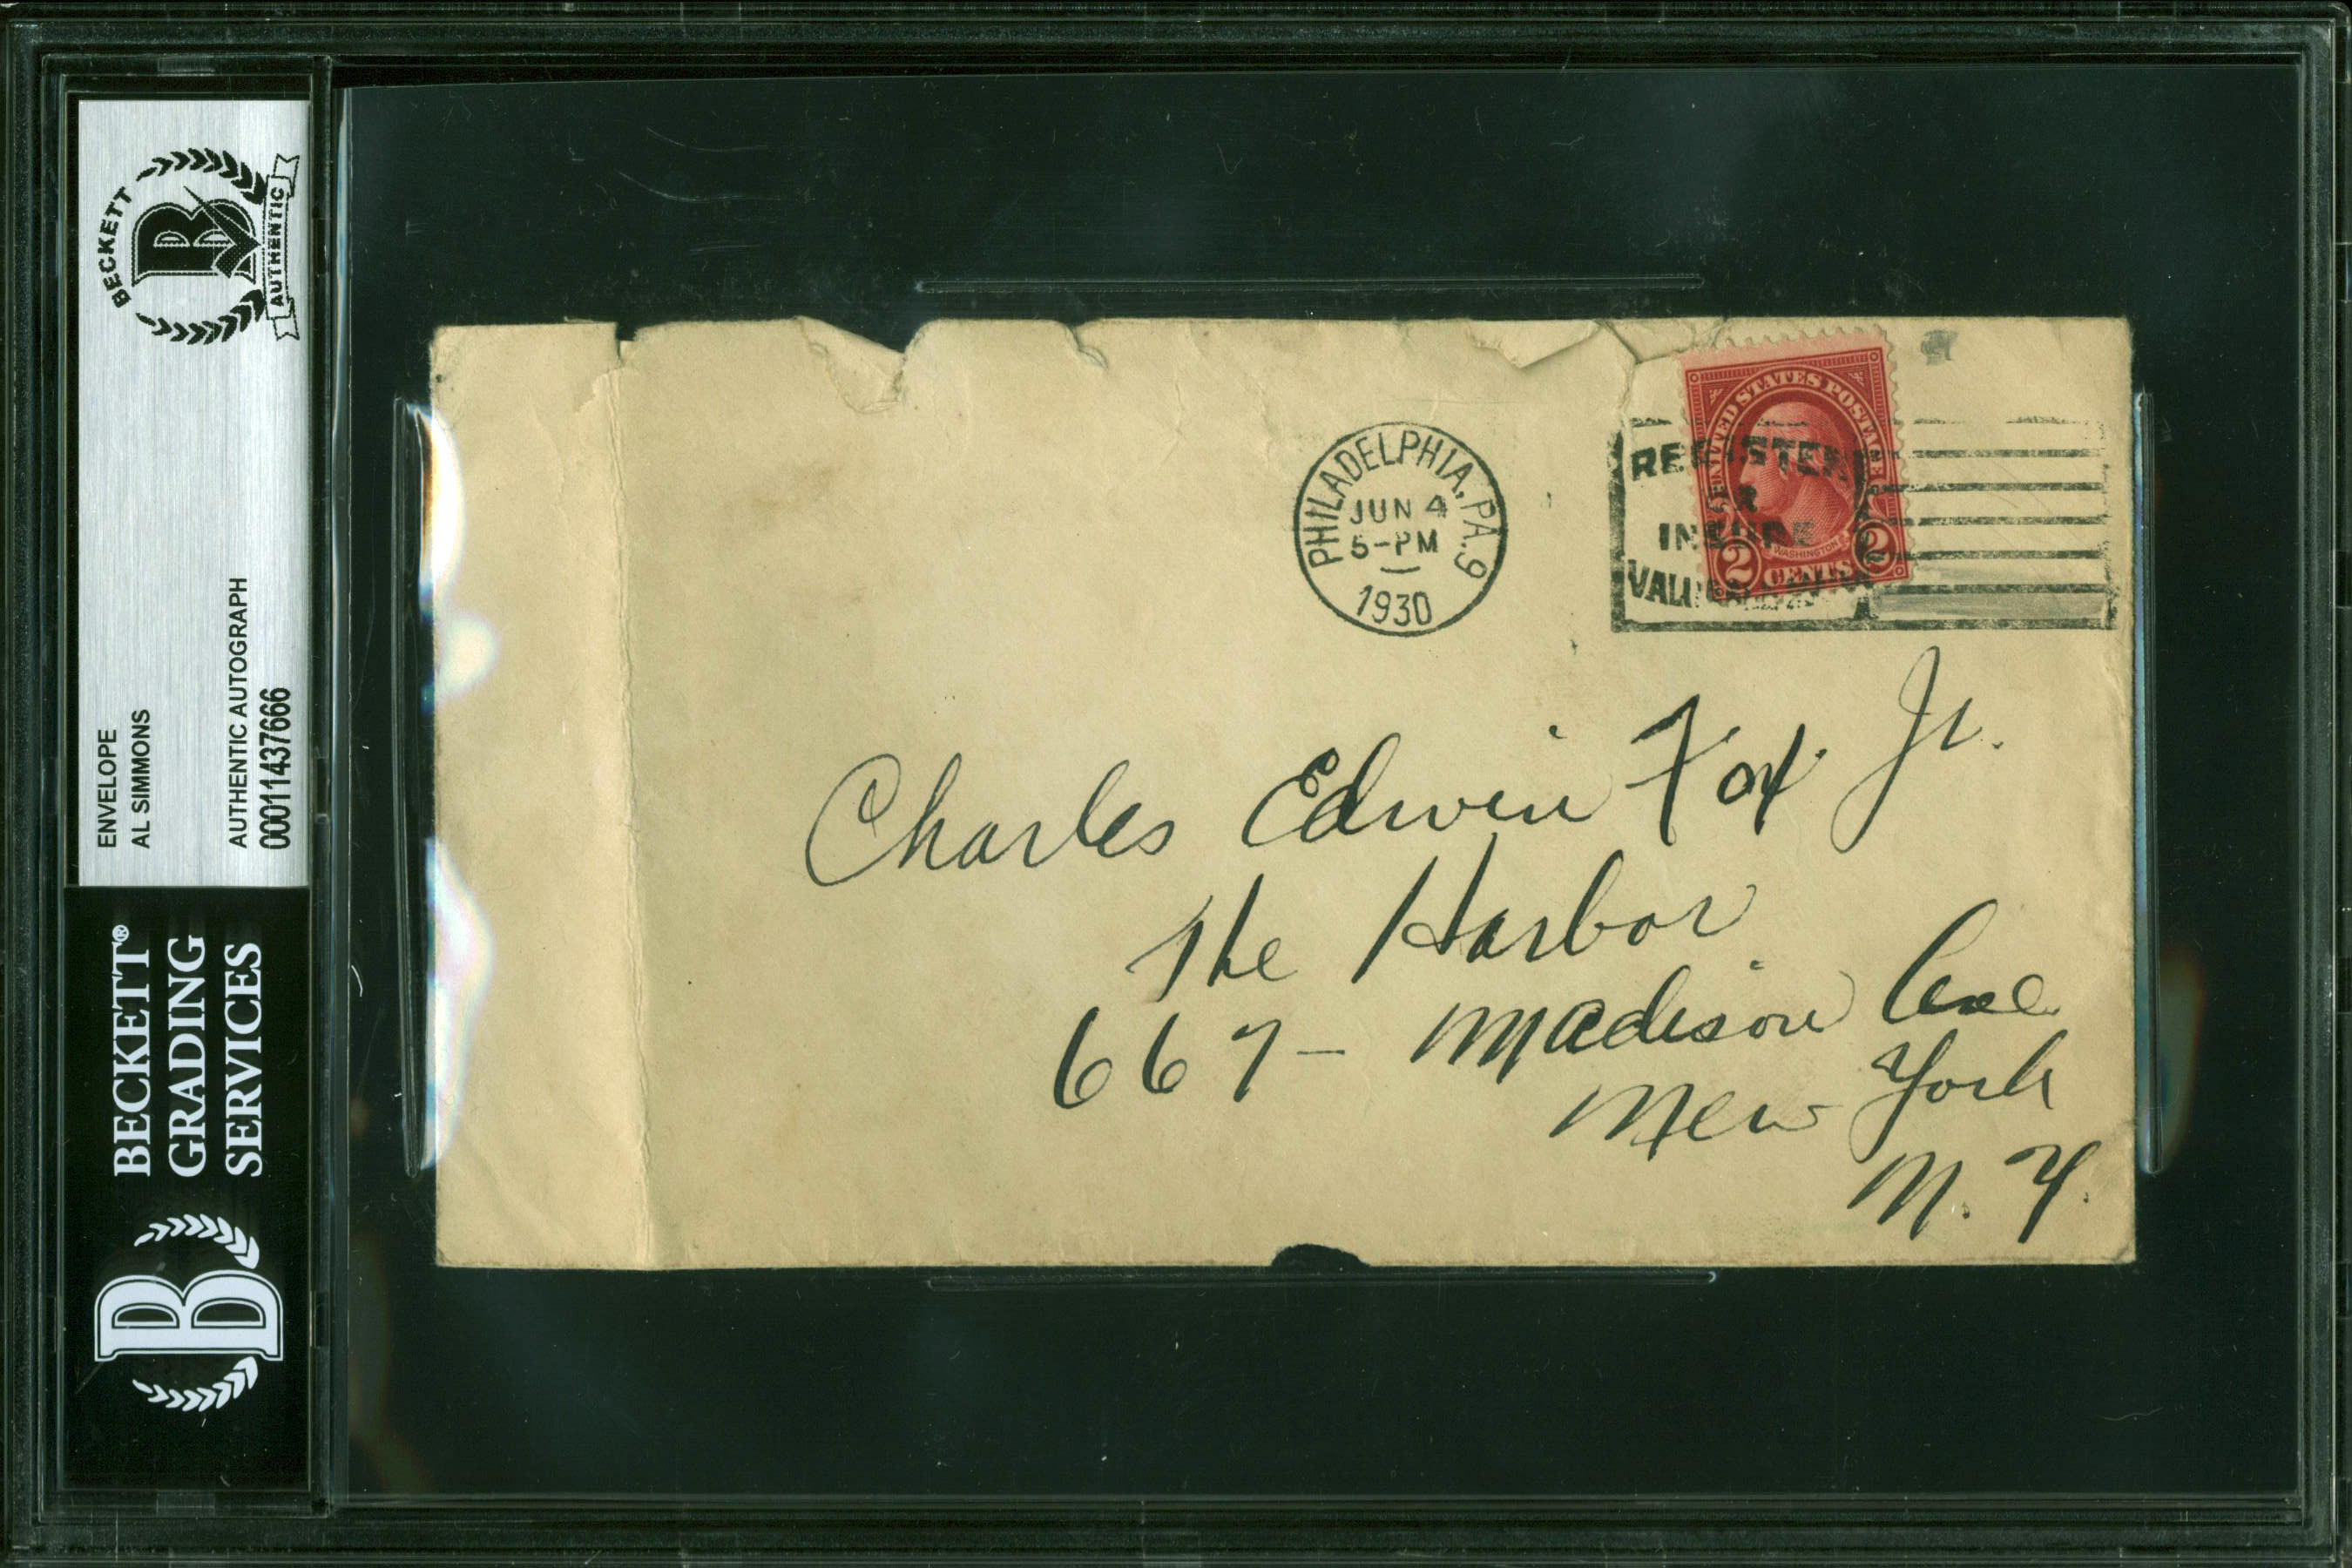 BECKETT
B
AUTHENTIC
ENVELOPE
AL SIMMONS
AUTHENTIC AUTOGRAPH
00011437666
BECKETT®
GRADING
SERVICES
B
PHILADELPHIA, PA. 9
JUN 4
5-PM
1930
UNITED STATES POSTAGE
WASHINGTON
2 CENTS 2
REGISTER
OR
INSURE
Charles Edwin Fox Jr.
The Harbor
667- Madison Ave
New York
N. Y.